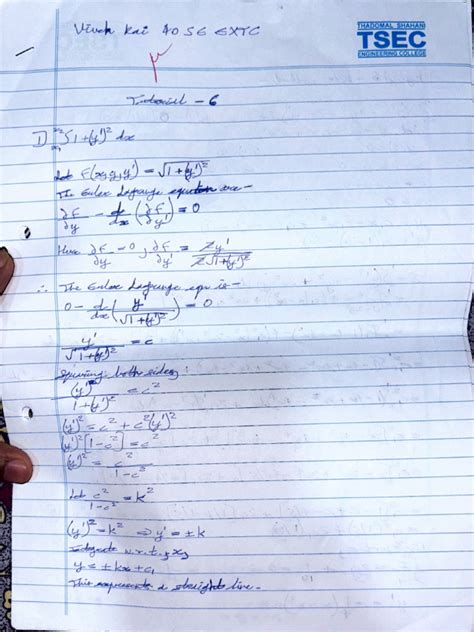 Vivek Rai 40 SE EXTC
THADOMAL SHAHANI
TSEC
ENGINEERING COLLEGE
Tutorial - 6
1) ∫ √1+(y')² dx
Let F(x,y,y') = √1+(y')²
The Euler Lagrange equation are -
∂F/∂y - d/dx (∂F/∂y') = 0
Here ∂F/∂y = 0 , ∂F/∂y' = 2y'/2√1+(y')²
∴ The Euler Lagrange eqn is -
0 - d/dx (y'/√1+(y')²) = 0
y'/√1+(y')² = c
Squaring both sides;
(y')²/1+(y')² = c²
(y')² = c² + c²(y')²
(y')²[1-c²] = c²
(y')² = c²/1-c²
Let c²/1-c² = k²
(y')² = k² ⇒ y' = ±k
Integrate w.r.t. x,
y = ±kx + c₁
This represents a straight line.